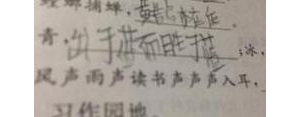 螳螂捕蝉，黄雀在后。
青，出于蓝而胜于蓝；冰，
风声雨声读书声声声入耳，
习作园地